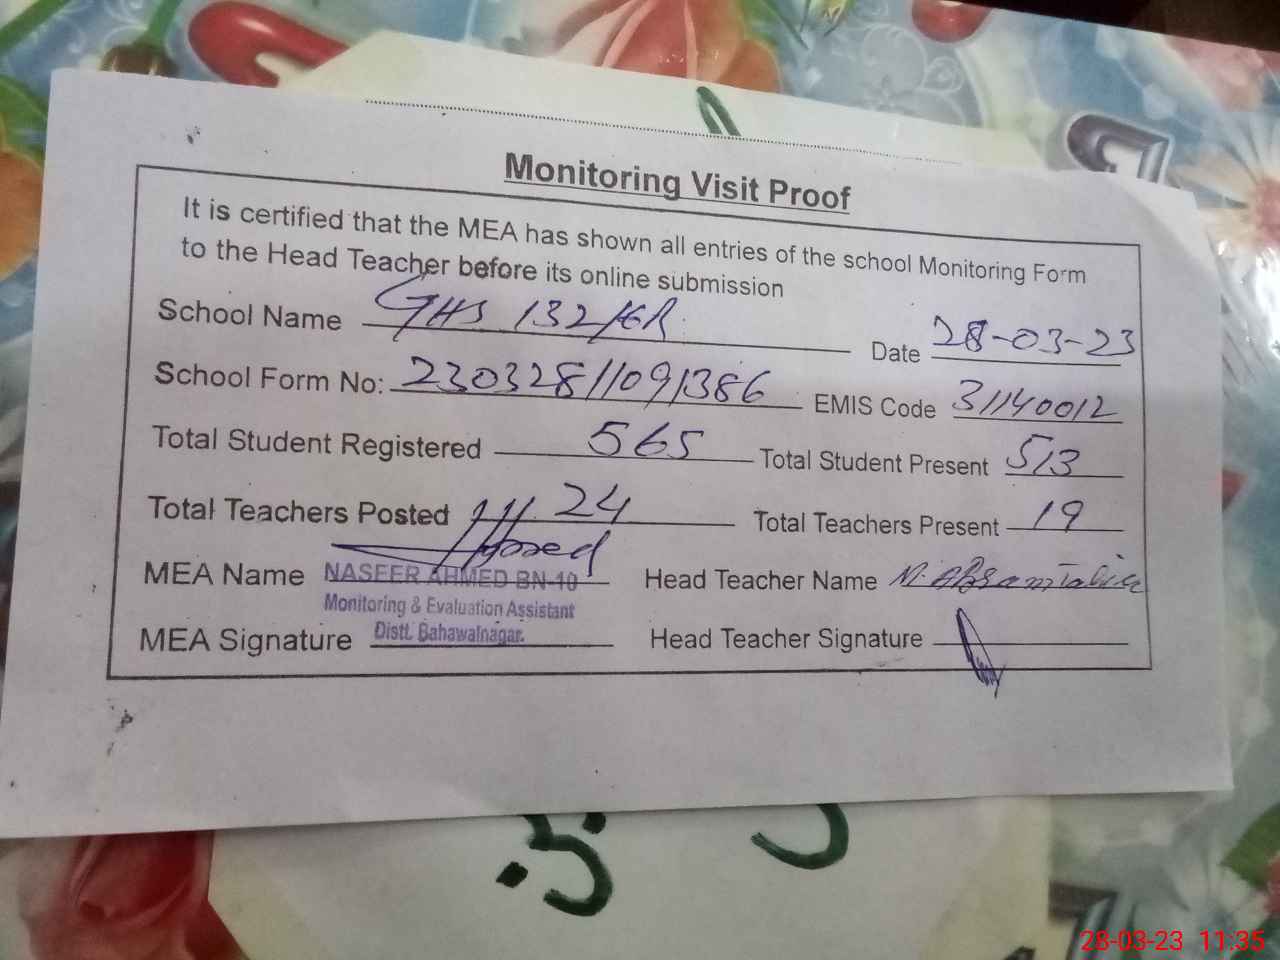 Monitoring Visit Proof
It is certified that the MEA has shown all entries of the school Monitoring Form
to the Head Teacher before its online submission
School Name GHS 132/6R Date 28-03-23
School Form No: 23032811091386 EMIS Code 31140012
Total Student Registered 565 Total Student Present 513
Total Teachers Posted 24 Total Teachers Present 19
MEA Name NASEER AHMED BN-10 Head Teacher Name M.
Monitoring & Evaluation Assistant
MEA Signature Distt. Bahawalnagar. Head Teacher Signature
28-03-23 11:35